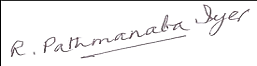 R. Pathmanaba Iyer